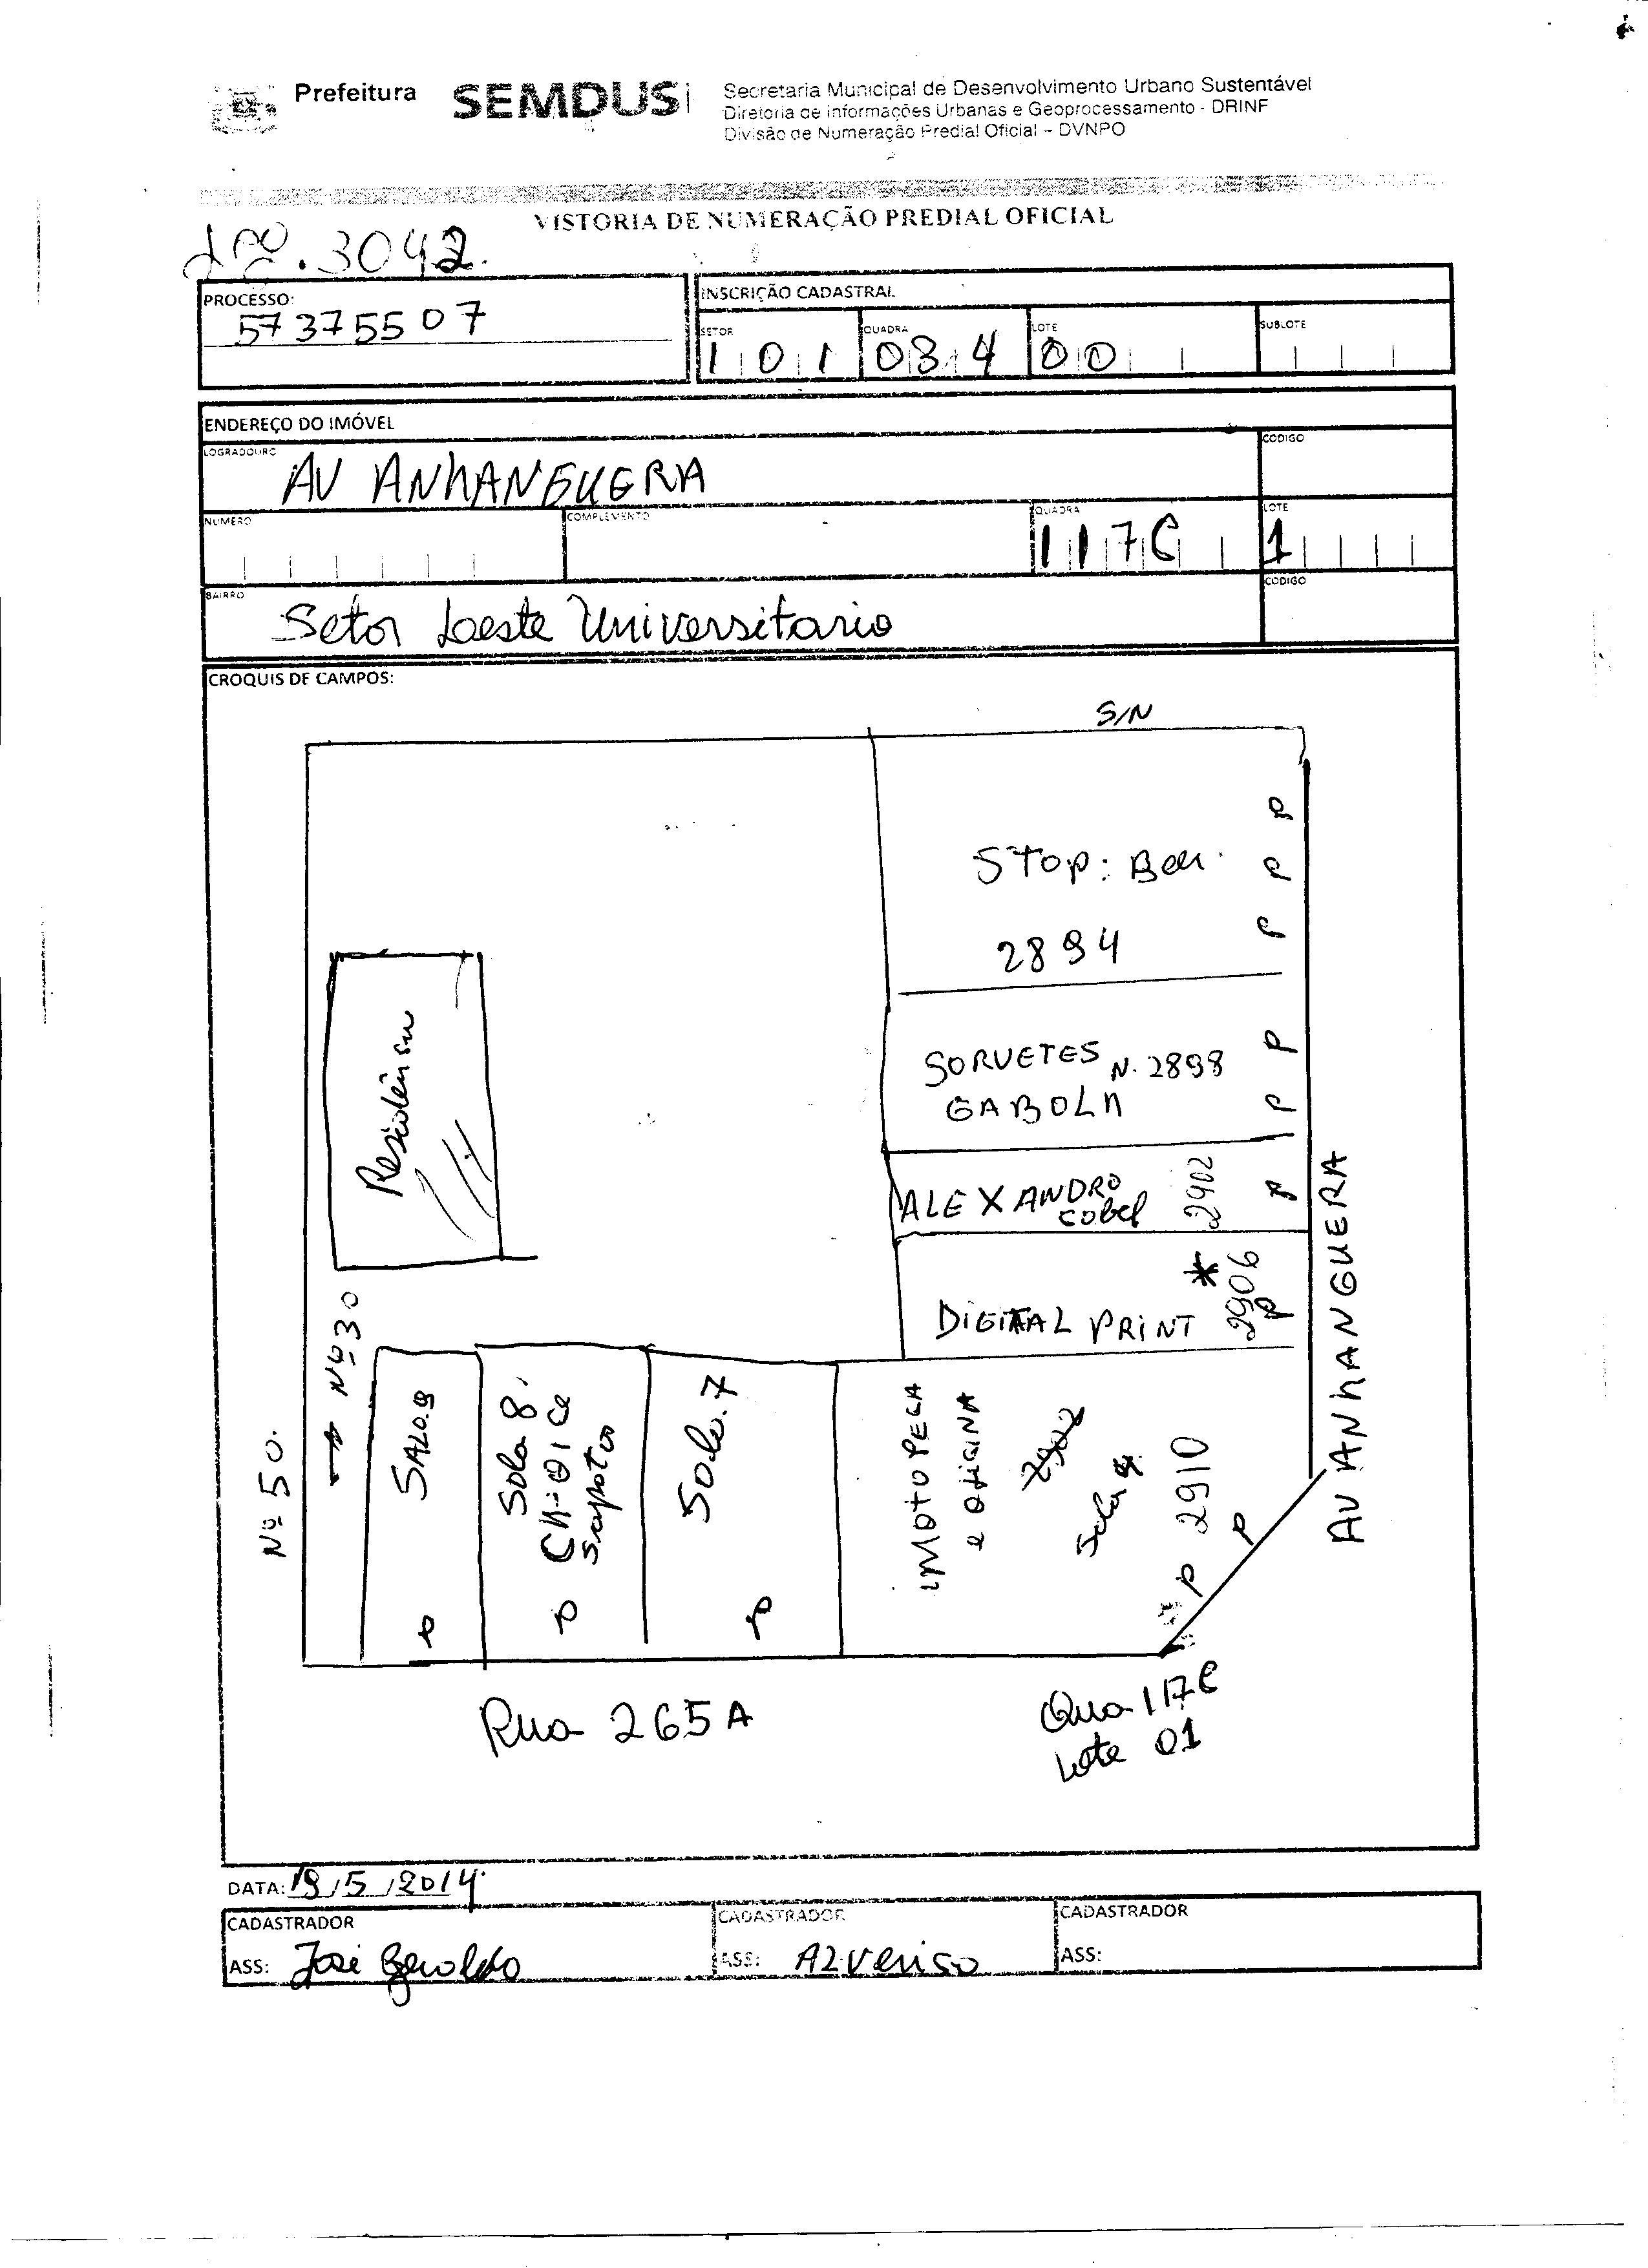 Prefeitura
SEMDUS
Secretaria Municipal de Desenvolvimento Urbano Sustentável
Diretoria de informações Urbanas e Geoprocessamento - DRINF
Divisão de Numeração Predial Oficial – DVNPO
VISTORIA DE NUMERAÇÃO PREDIAL OFICIAL
3042.
PROCESSO:
57375507
INSCRIÇÃO CADASTRAL
SETOR
101
QUADRA
034
LOTE
00
SUBLOTE
ENDEREÇO DO IMÓVEL
LOGRADOURO
AV ANHANGUERA
CODIGO
NUMERO
COMPLEMENTO
QUADRA
117C
LOTE
1
BAIRRO
Setor Leste Universitario
CODIGO
CROQUIS DE CAMPOS:
S/N
P
STOP: Ber.
P
2894
P
Residência
SORVETES N. 2898
P
GABOLA
P
ALEXANDRO
2902
P
DIGITAL PRINT
*
2906
P
AV ANHANGUERA
Nº 50.
Nº 30
SALA.9
P
Sala 8
CHOICE
Sapatos
P
Sala.7
P
MOTO PEÇA
e OFICINA
2902
Sala
2910
P
P
Rua 265A
Qua 117C
Lote 01
DATA: 19/5/2014
CADASTRADOR
ASS: José Geraldo
CADASTRADOR
ASS:
CADASTRADOR
ASS: